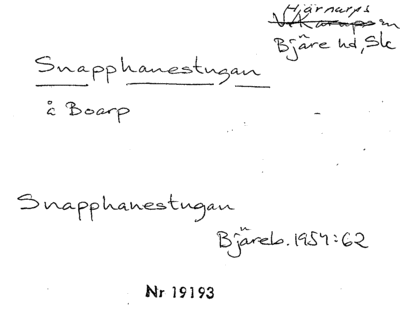 Hjärnarps
V. Karups sn
Bjäre hd, Sk
Snapphanestugan
å Boarp
Snapphanestugan
Bjäreb. 1954:62
Nr 19193